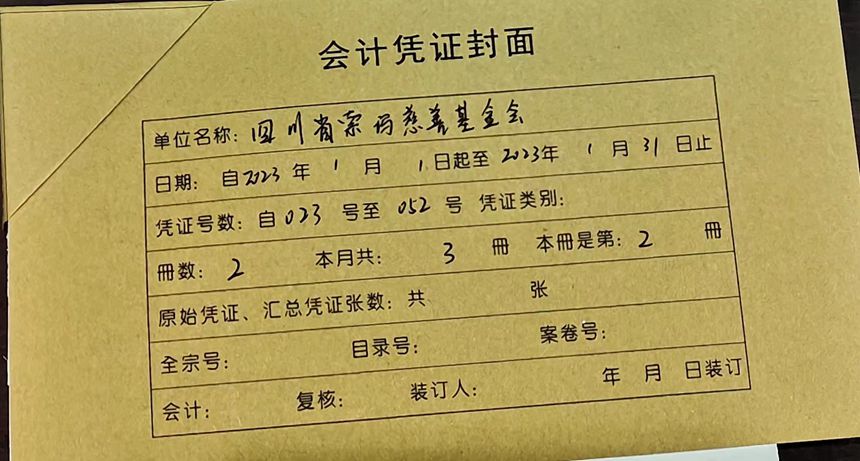 会计凭证封面
单位名称：四川省索玛慈善基金会
日期：自2023年1月1日起至2023年1月31日止
凭证号数：自023号至052号 凭证类别：
冊数：2 本月共：3冊 本冊是第：2冊
原始凭证、汇总凭证张数：共 张
全宗号： 目录号： 案卷号：
会计： 复核： 装订人： 年 月 日装订